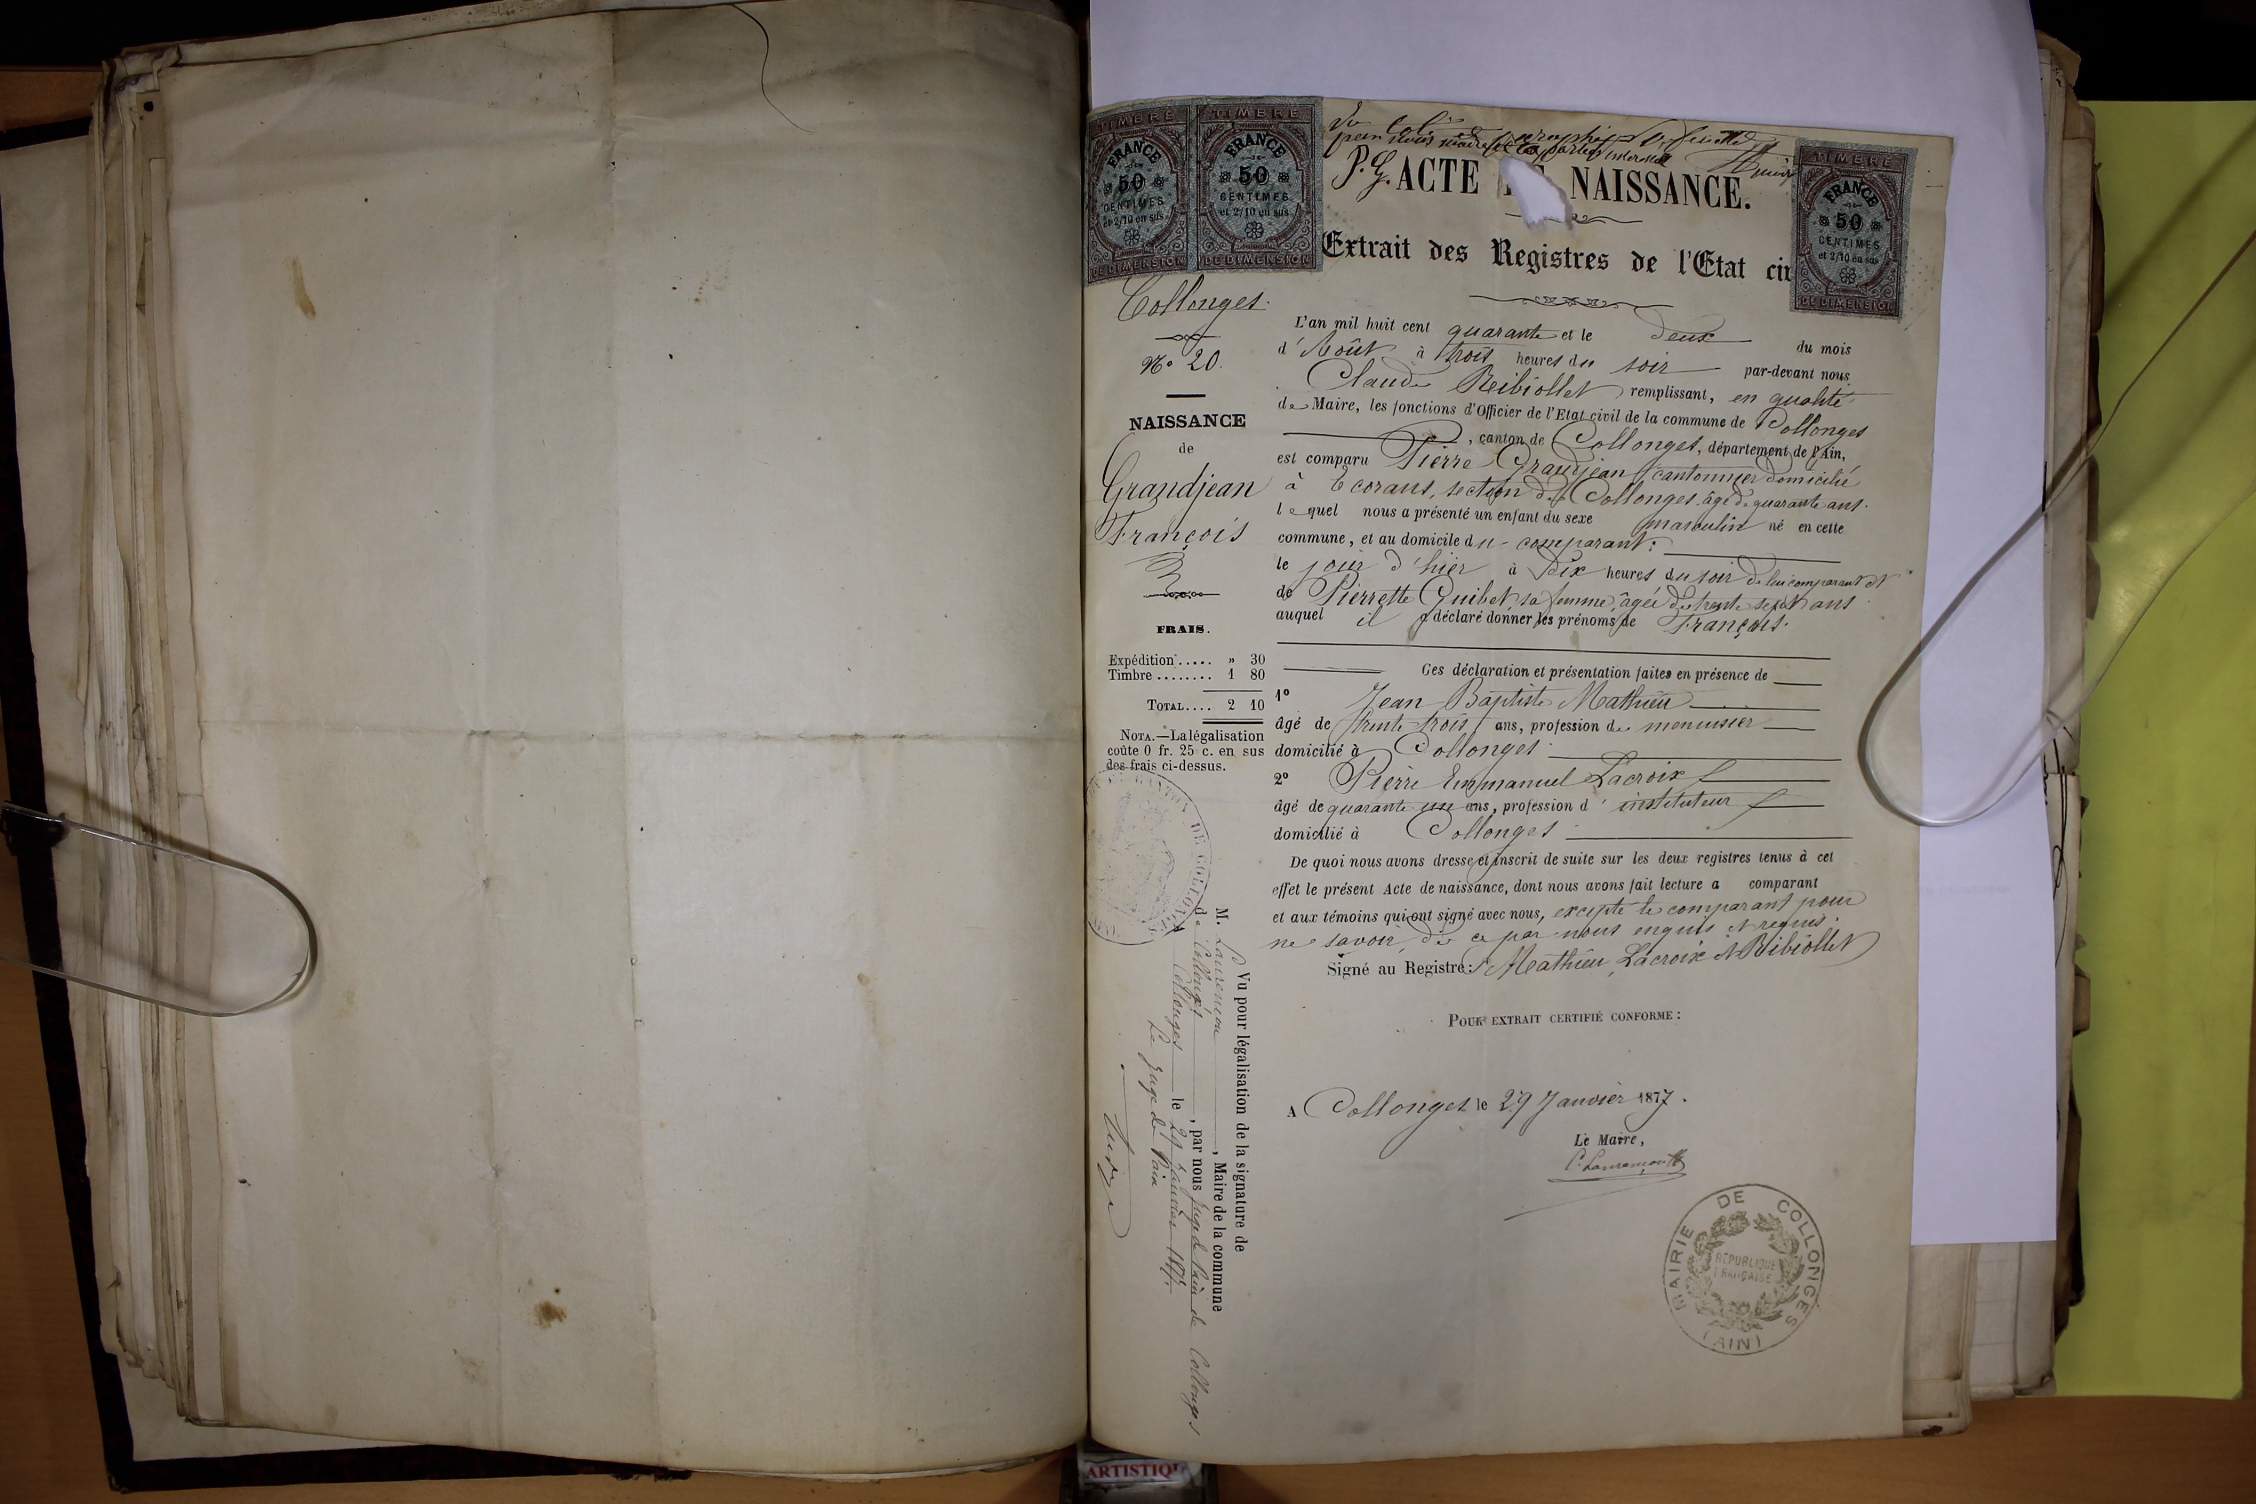 TIMBRE
FRANCE
50
CENTIMES
et 2/10 en sus
DE DIMENSION
TIMBRE
FRANCE
50
CENTIMES
et 2/10 en sus
DE DIMENSION
TIMBRE
FRANCE
50
CENTIMES
et 2/10 en sus
DE DIMENSION
P. G. ACTE NAISSANCE.
Extrait des Registres de l'Etat
Collonges.
No 20.
NAISSANCE
de
Grandjean
François
FRAIS.
Expédition..... » 30
Timbre ........ 1 80
TOTAL.... 2 10
NOTA.—La légalisation
coûte 0 fr. 25 c. en sus
des frais ci-dessus.
L'an mil huit cent quarante et le deux du mois
d'Août à trois heures du soir par-devant nous
Claude Reibiollet remplissant, en qualité
de Maire, les fonctions d'Officier de l'Etat civil de la commune de Collonges
, canton de Collonges, département de l'Ain,
est comparu Pierre Grandjean cantonnier domicilié
à Ecorans, section de Collonges âgé de quarante ans.
lequel nous a présenté un enfant du sexe masculin né en cette
commune, et au domicile du comparant.
le jour d'hier à dix heures du soir de lui comparant et
de Pierrette Guibet, sa femme, âgée de trente sept ans
auquel il a déclaré donner les prénoms de François.
Ces déclaration et présentation faites en présence de
1° Jean Baptiste Mathieu
âgé de trente trois ans, profession de menuisier
domicilié à Collonges
2° Pierre Emmanuel Lacroix
âgé de quarante un ans, profession d'instituteur
domicilié à Collonges
De quoi nous avons dressé et inscrit de suite sur les deux registres tenus à cet
effet le présent Acte de naissance, dont nous avons fait lecture a comparant
et aux témoins qui ont signé avec nous, excepté le comparant pour
ne savoir, de ce par nous enquis et requis.
Signé au Registre: Mathieu, Lacroix et Reibiollet
POUR EXTRAIT CERTIFIÉ CONFORME :
A Collonges le 29 Janvier 1877.
Le Maire,
MAIRIE DE COLLONGES
(AIN)
RÉPUBLIQUE
FRANÇAISE
Vu pour légalisation de la signature de
M. Laurençon, Maire de la commune
de Collonges, par nous juge de Paix de Collonges
Collonges le 29 janvier 1877.
Le Juge de Paix
ARTISTIQ